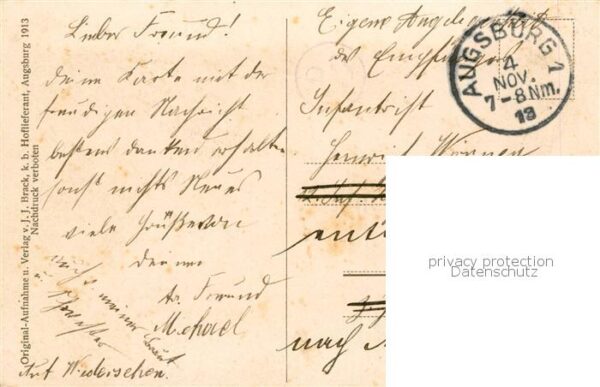 Original-Aufnahme u. Verlag v. J. J. Brack, k. b. Hoflieferant, Augsburg 1913
Nachdruck verboten
Lieber Freund!
deine Karte mit der
freudigen Nachricht
bestens dankend erhalten
sonst nichts Neues
viele Grüße von
deinem
Freund
Michael
auch meiner Braut
Auf Wiedersehen.
Eigene Angelegenheit
des Empfängers
Infanterist
Heinrich
nach
AUGSBURG 1
4
NOV.
7-8 Nm.
13
privacy protection
Datenschutz